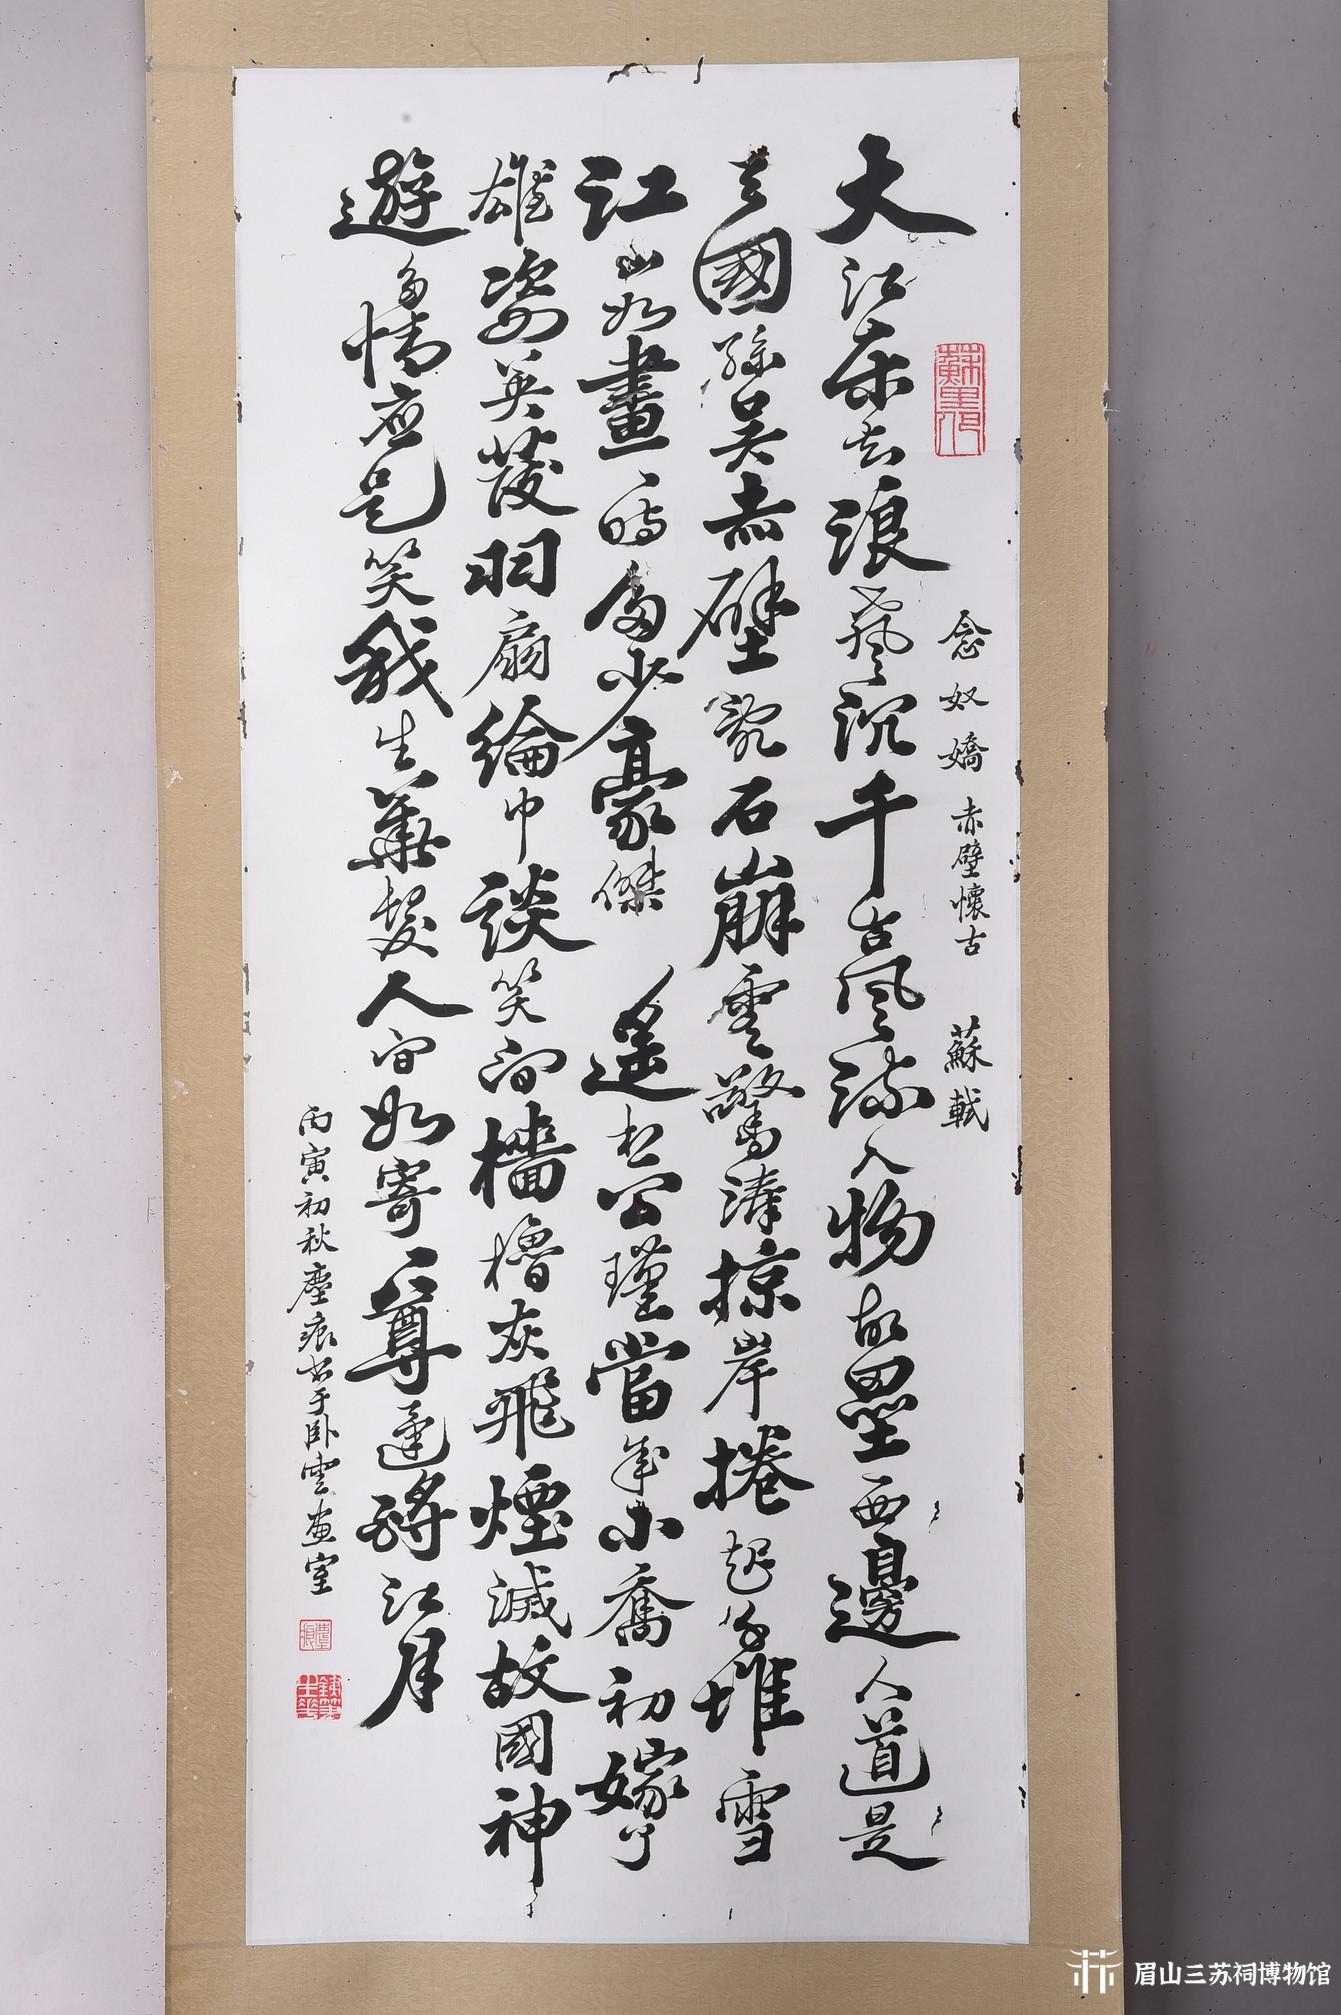 念奴嬌 赤壁懷古 蘇軾
大江東去浪聲沉千古風流人物故壘西邊人道是
三國孫吳赤壁亂石崩雲驚濤掠岸捲起千堆雪
江山如畫一時多少豪傑 遙想公瑾當年小喬初嫁了
雄姿英發羽扇綸巾談笑間檣櫓灰飛煙滅故國神
遊多情應是笑我生華髮人間如寄一尊還酹江月
丙寅初秋塵痕書于臥雲畫室
塵痕
鐵筆生華
眉山三苏祠博物馆